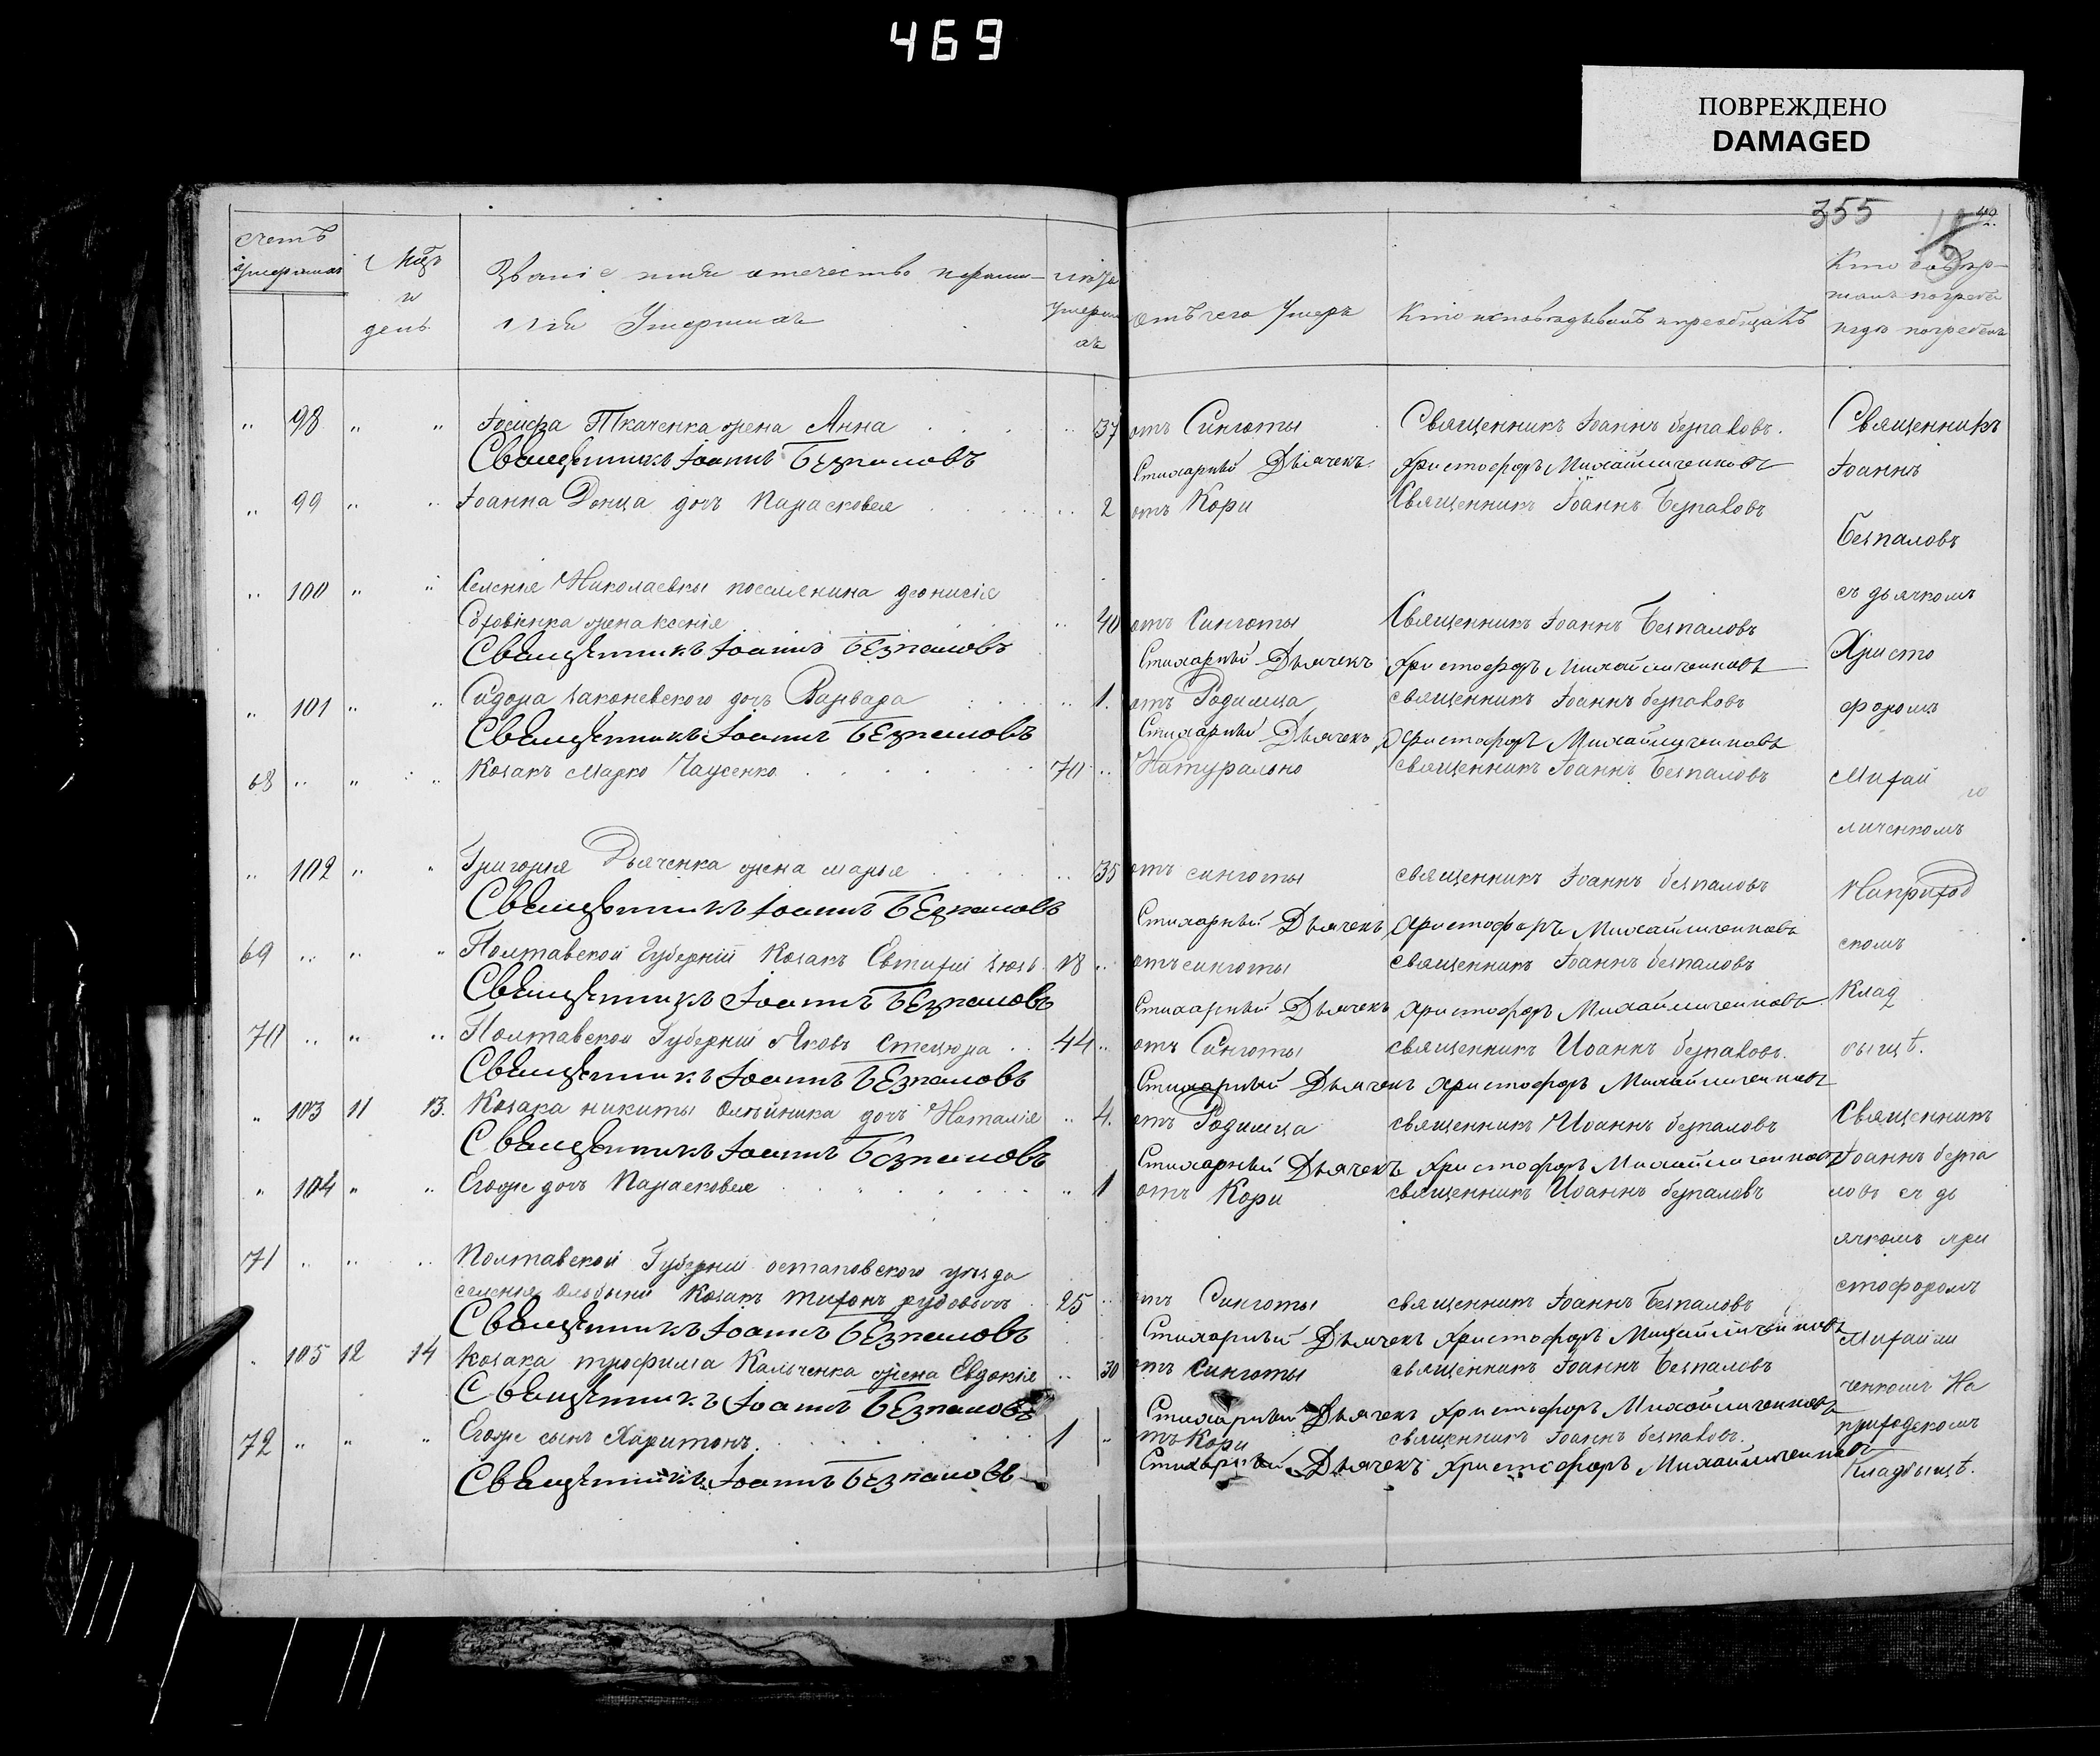 469
ПОВРЕЖДЕНО
DAMAGED
355
49.
Счетъ умершихъ
Мѣц и день
Званіе имя отечество
или Умершихъ
Лѣта умершихъ
отъ чего умеръ
Кто исповѣдывалъ и пріобщалъ
Кто совершалъ погребеніе и гдѣ погребенъ
„ 98 „ „ Іосифа Ткаченка жена Анна 37 отъ Синготы Священникъ Іоаннъ Безпаловъ. Священникъ
Священникъ Іоаннъ Безпаловъ Стихарный Дьячекъ Христофоръ Михайличенковъ Іоаннъ
„ 99 „ „ Іоанна Донца дочь Парасковея 2 отъ Кори Священникъ Іоаннъ Безпаловъ
Безпаловъ
„ 100 „ „ Селенія Николаевки поселянина деонисія съ дьячкомъ
жена ксенія 40 отъ Синготы Священникъ Іоаннъ Безпаловъ
Священникъ Іоаннъ Безпаловъ Стихарный Дьячекъ Христофоръ Михайличенковъ Христо
„ 101 „ „ Сидора дочь Варвара 1. отъ Родимца священникъ Іоаннъ безпаловъ форомъ
Священникъ Іоаннъ Безпаловъ Стихарный Дьячекъ Христофоръ Михайличенковъ
68 „ „ „ Козакъ Марко Чаусенко 70 Натурально священникъ Іоаннъ Безпаловъ Михай
личенкомъ
„ 102 „ „ Григорія Дьяченка жена марья 35 отъ синготы священникъ Іоаннъ безпаловъ Наприход
Священникъ Іоаннъ Безпаловъ Стихарный Дьячекъ Христофоръ Михайличенковъ
69 „ „ „ Полтавской Губерніи Козакъ Евтифій 18 отъ синготы священникъ Іоаннъ безпаловъ скомъ
Священникъ Іоаннъ Безпаловъ Стихарный Дьячекъ Христофоръ Михайличенковъ Клад
70 „ „ „ Полтавской Губерніи Яковъ Стецюра 44 отъ Синготы священникъ Иоаннъ безпаловъ. бищѣ.
Священникъ Іоаннъ Безпаловъ Стихарный Дьячекъ Христофоръ Михайличенковъ
„ 103 11 13. Козака никиты Олѣйника дочь Наталія 4. отъ Родимца священникъ Иоаннъ безпаловъ Священникъ
Священникъ Іоаннъ Безпаловъ Стихарный Дьячекъ Христофоръ Михайличенковъ Іоаннъ безпа
„ 104 „ „ Егоже дочь Парасковея 1 отъ Кори священникъ Иоаннъ безпаловъ ловъ съ дь
ячкомъ хри
71 „ „ „ Полтавской Губерніи остаповского уѣзда
селенія Козакъ тифонъ 25 отъ Синготы священникъ Іоаннъ Безпаловъ стофоромъ
Священникъ Іоаннъ Безпаловъ Стихарный Дьячекъ Христофоръ Михайличенковъ Михайли
„ 105 12 14 Козака трофима Кальченка жена Евдокія 30 отъ Синготы священникъ Іоаннъ Безпаловъ
Священникъ Іоаннъ Безпаловъ Стихарный Дьячекъ Христофоръ Михайличенковъ ченкомъ На
72 „ „ „ Егоже сынъ Харитонъ. 1 отъ Кори священникъ Іоаннъ безпаловъ. приходскомъ
Священникъ Іоаннъ Безпаловъ Стихарный Дьячекъ Христофоръ Михайличенковъ Кладбищѣ.